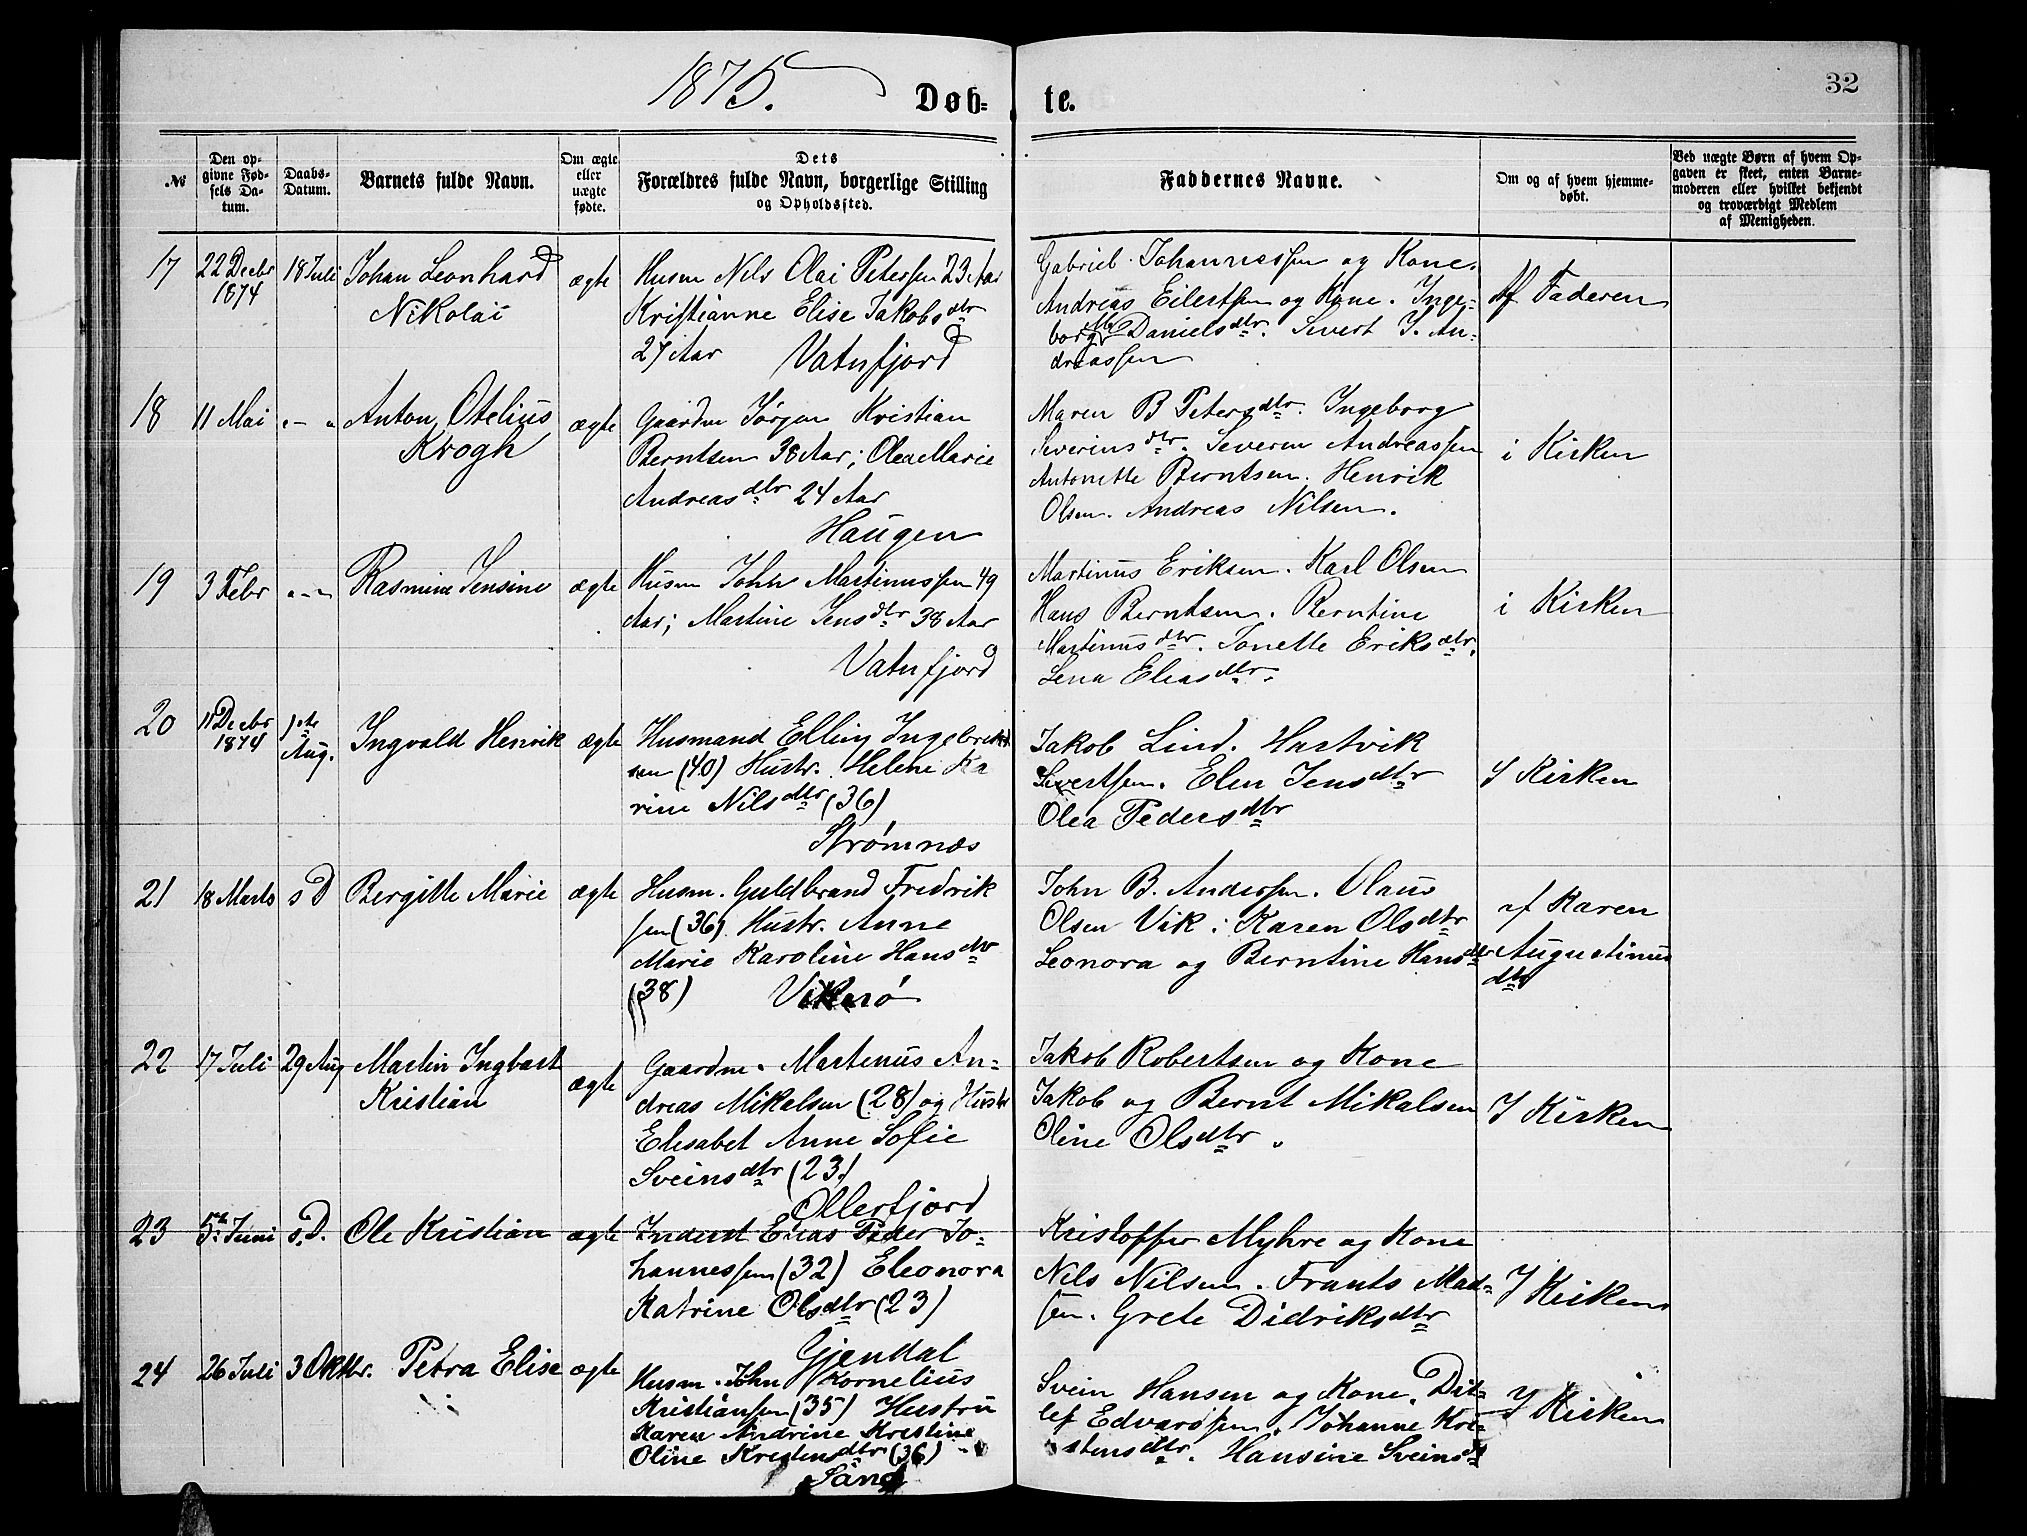 1875.
Døb- te.
32
No
Den op-
givne Fød-
sels Da-
tum.
Daabs-
Datum.
Barnets fulde Navn.
Om ægte
eller
uægte
fødte.
Dets
Forældres fulde Navn, borgerlige Stilling
og Opholdssted.
Faddernes Navne.
Om og af hvem hjemme-
døbt.
Ved uægte Børn af hvem Op-
gaven er skeet, enten Barne-
moderen eller hvilket bekjendt
og troværdigt Medlem
af Menigheden.
17
22 Decbr
1874
18 Juli
Johan Leonhard
Nikolai
ægte
Husm Nils Olai Petersen 23 Aar
Kristianne Elise Jakobsdtr
27 Aar Vatnfjord
Gabriel Johannessen og Kone.
Andreas Eilertsen og Kone. Inge-
borg M Danielsdtr. Sivert J. An-
dreassen
Af Faderen
18
11 Mai
" - "
Anton Otelius
Krogh
ægte
Gaardm Jørgen Kristian
Berntsen 38 Aar; Olea Marie
Andreasdtr 24 Aar
Haugen
Maren B Petersdtr. Ingeborg
Severinsdtr. Severin Andreassen
Antonette Berntsen. Henrik
Olsen. Andreas Nilsen.
i Kirken
19
3 Febr
" - "
Rasmine Jensine
ægte
Husm John Martinussen 49
Aar; Martine Jensdtr 38 Aar
Vatnfjord
Martinus Eriksen. Karl Olsen
Hans Berntsen. Berntine
Martinusdtr. Jonette Eriksdtr.
Lena Eliasdtr.
i Kirken
20
11 Decbr
1874
1ste
Aug.
Ingvald Henrik
ægte
Husmand Elling Ingebrigt
sen (40) Hustr. Helene Ka
rine Nilsdtr (36)
Strømnæs
Jakob Lind. Hartvik
Sivertsen. Elen Jensdtr
Olea Pedersdtr
I Kirken
21
18 Marts
s D
Bergitte Marie
ægte
Husm. Guldbrand Fredrik
sen (36) Hustr. Anne
Marie Karoline Hansdtr
(38) Vikerø
John B. Anderssen. Olaus
Olsen Vik. Karen Olsdtr
Leonora og Berntine Hansdtr
af Karen
Augustinus
dtr
22
17 Juli
29 Aug
Martin Ingbart
Kristian
ægte
Gaardm. Martinus An-
dreas Mikalsen (28) og Hustr
Elisabet Anne Sofie
Sveinsdtr (23)
Ollerfjord
Jakob Robertsen og Kone
Jakob og Bernt Mikalsen
Oline Olsdtr.
I Kirken
23
5te Juni
s. D.
Ole Kristian
ægte
Inderst Elias Peder Jo-
hannessen (32) Eleonora
Katrine Olsdtr (23)
Gjendal
Kristoffer Myhre og Kone
Nils Nilsen. Frants Mad-
sen. Grete Didriksdtr
I Kirken
24
26 Juli
3 Oktbr.
Petra Elise
ægte
Husm. John Kornelius
Kristiansen (35) Hustru
Karen Andrine Kristine
Oline Kristensdtr (36)
Sand
Svein Hansen og Kone. Dit-
lef Edvardsen. Johanne Kri-
stensdtr. Hansine Sveinsdtr
I Kirken